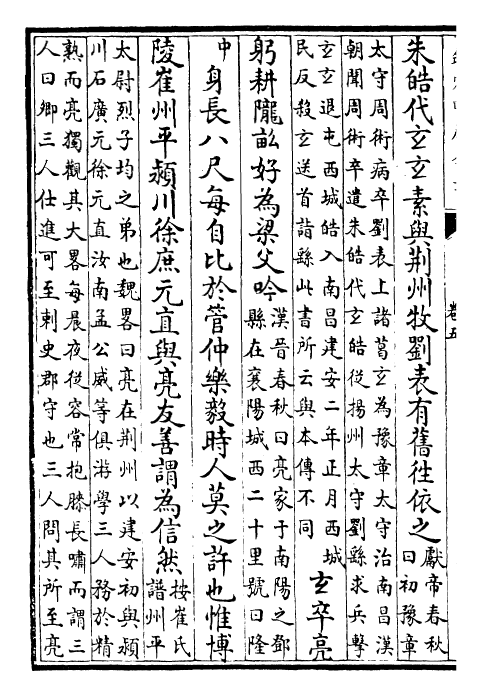 朱皓代玄玄素與荆州牧劉表有舊往依之
獻帝春秋
曰初豫章
太守周術病卒劉表上諸葛玄為豫章太守治南昌漢
朝聞周術卒遣朱皓代玄皓從揚州太守劉繇求兵擊
玄玄退屯西城皓入南昌建安二年正月西城
民反殺玄送首詣繇此書所云與本傳不同
玄卒亮
躬耕隴畝好為梁父吟
漢晉春秋曰亮家于南陽之鄧
縣在襄陽城西二十里號曰隆
中
身長八尺每自比於管仲樂毅時人莫之許也惟博
陵崔州平潁川徐庶元直與亮友善謂為信然
按崔氏
譜州平
太尉烈子均之弟也魏畧曰亮在荆州以建安初與潁
川石廣元徐元直汝南孟公威等俱游學三人務於精
熟而亮獨觀其大畧每晨夜從容常抱膝長嘯而謂三
人曰卿三人仕進可至刺史郡守也三人問其所至亮
卷五